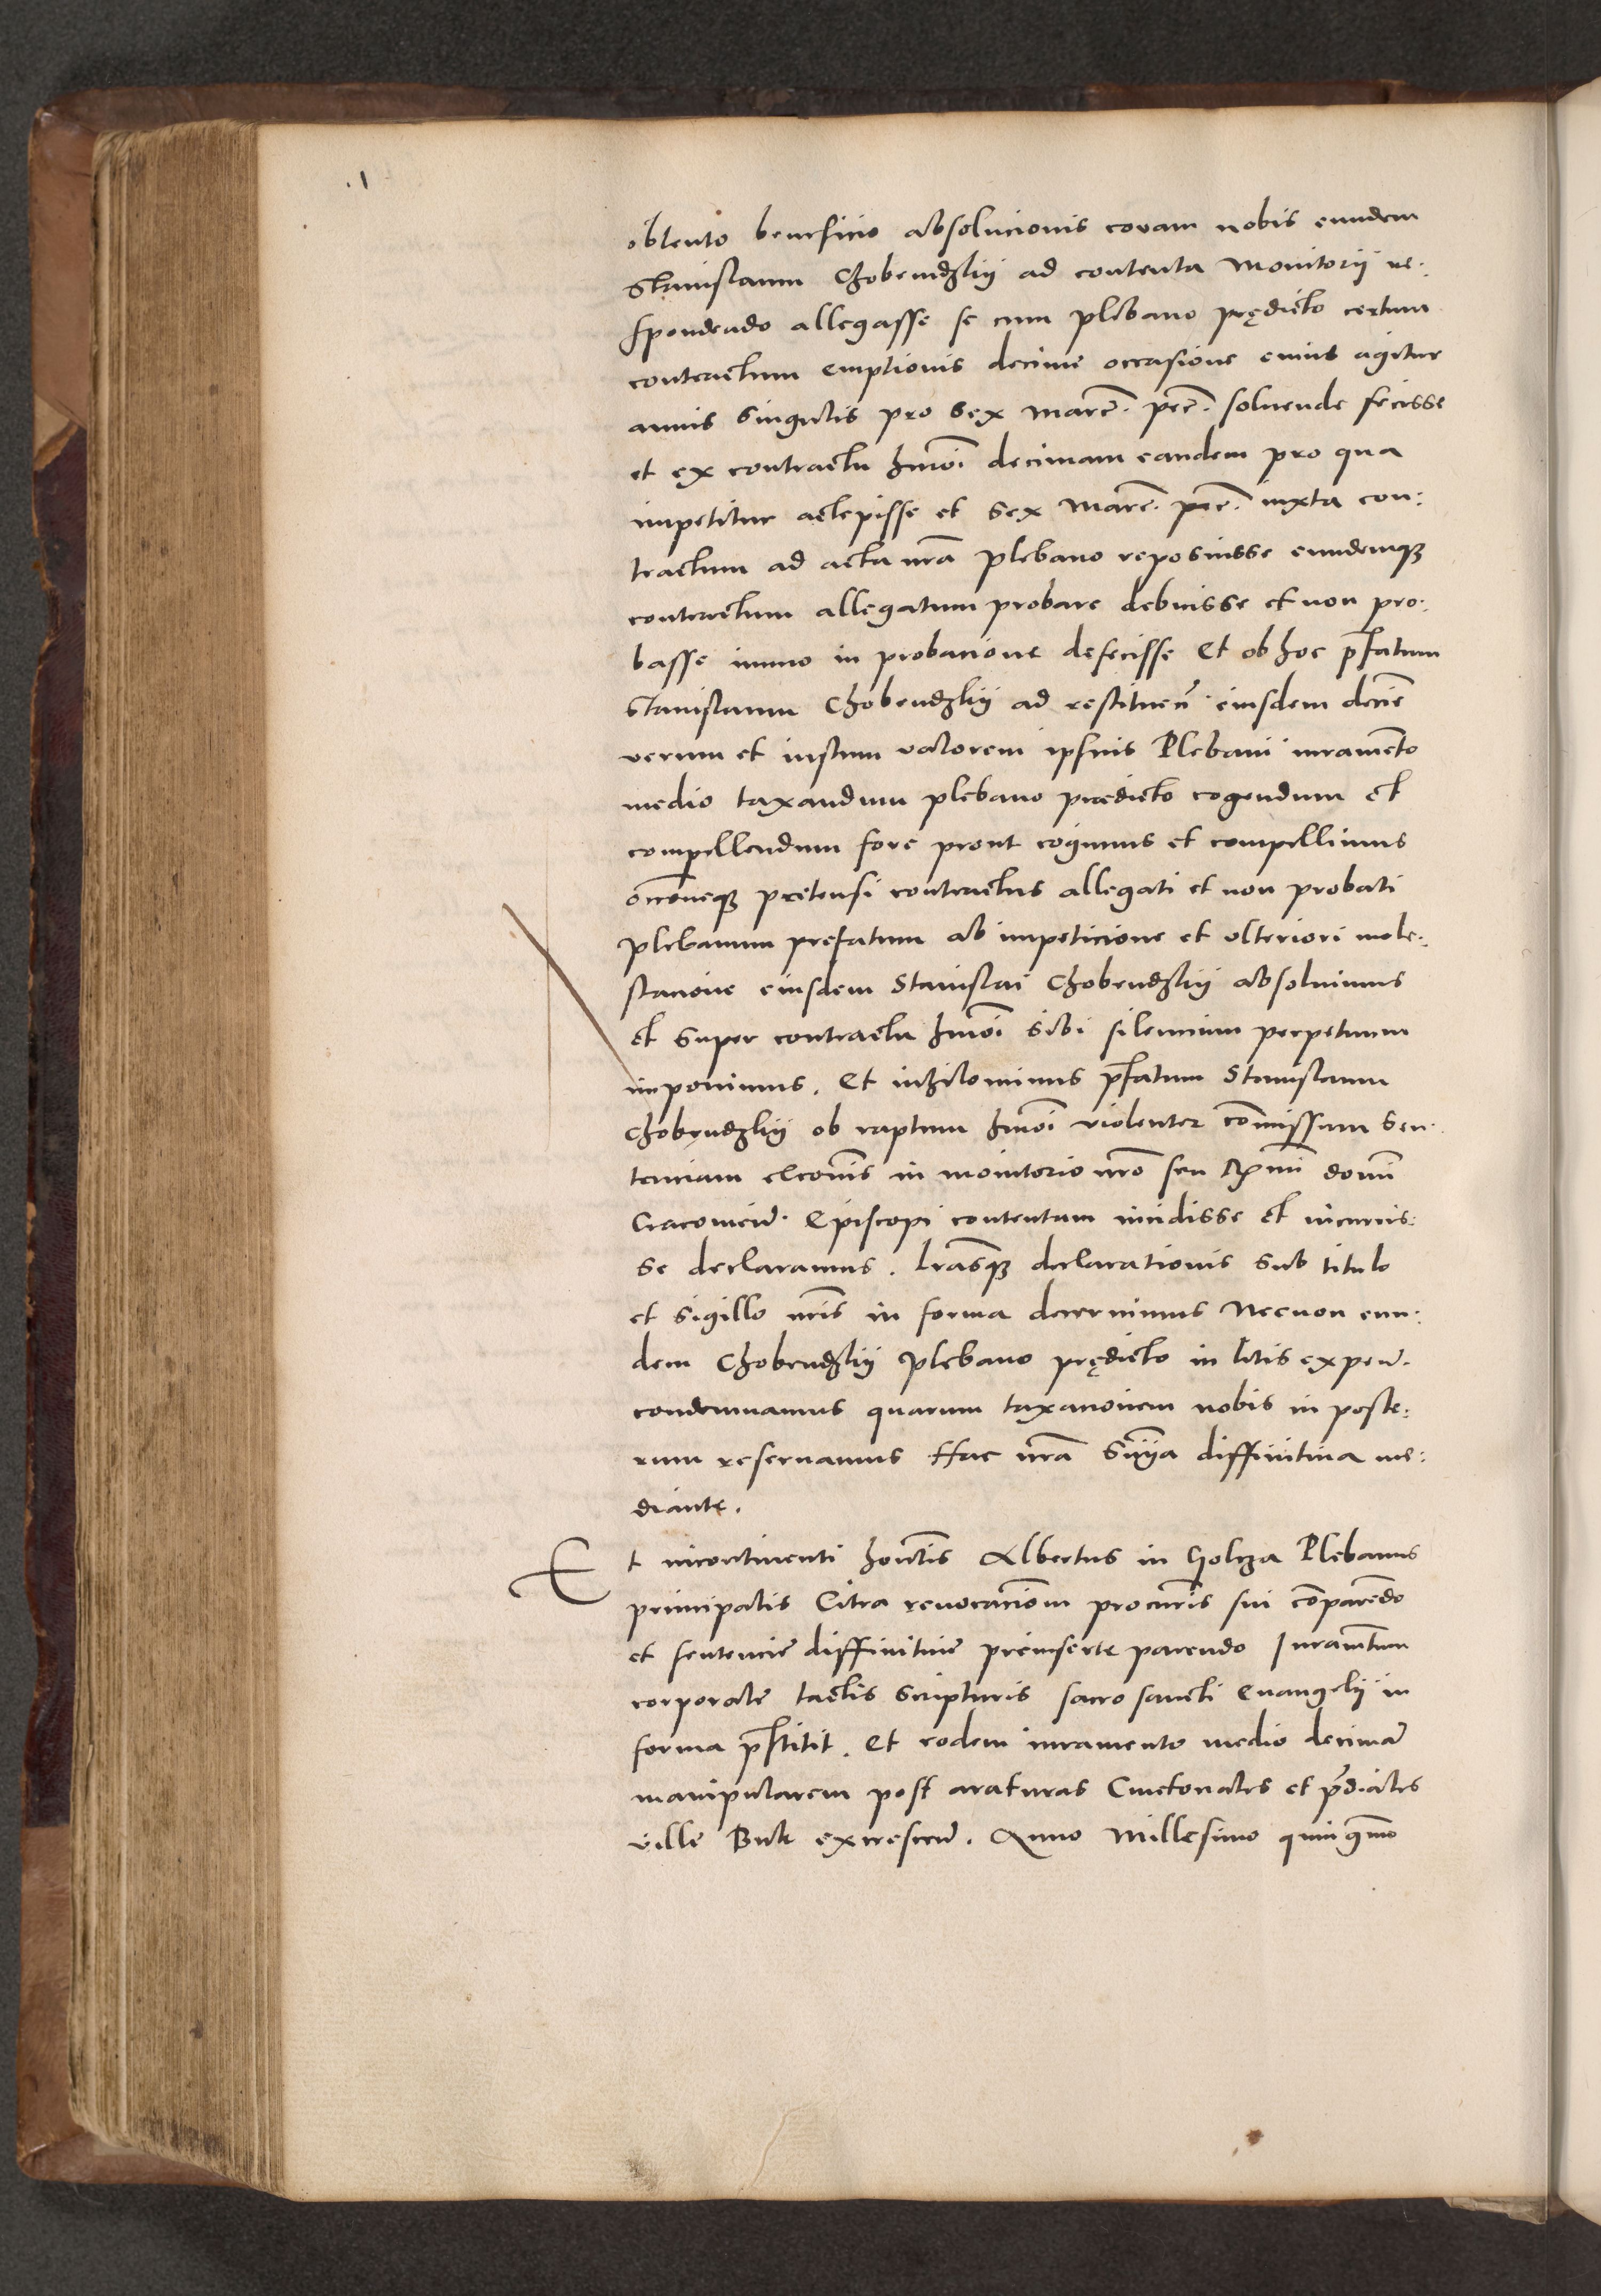 obtento beneficio absolucionis coram nobis eundem
Stanislaum Chobendzkij ad contenta Monitorij re:
spondendo allegasse se cum plebano prędicto certum
contractum emptionis decime occasione cuius agitur
annis singulis pro sex marc. pec. soluende fecisse
et ex contractu hmōi decimam eandem pro qua
impetitur accepisse et sex marc. pec. iuxta con:
tractum ad acta nrā plebano reposuisse eundemqȝ
contractum allegatum probare debuisse et non pro:
basse immo in probacione defecisse Et ob hoc pr̄fatum
Stanislaum Chobendzkij ad restituen̄ eiusdem decie
verum et iustum valorem ipsius Plebani iuramento
medio taxandum plebano prædicto cogendum et
compellendum fore prout cogimus et compellimus
occōneqȝ pretensi contractus allegati et non probati
plebanum prefatum ab impeticione et vlteriori mole:
stacione eiusdem Stanislai Chobendzkij absoluimus
et super contractu hmōi sibi silencium perpetuum
imponimus. Et nihilominus pr̄fatum Stanislaum
Chobendzkij ob raptum hmōi violenter cōmissum sen:
tenciam exconis in monitorio nrō seu Rmi domī
Cracouien̄. Episcopi contentam incidisse et incurris:
se declaramus. Lrāsqȝ declarationis sub titulo
et sigillo nrīs in forma decernimus Necnon eun:
dem Chobendzkij plebano prędicto in litis expen̄.
condemnamus quarum taxacionem nobis in poste:
rum reseruamus Hac nrā snīa diffinitiua me:
diante.
Et incontinenti honlis Albertus in Golcza Plebanus
principalis Citra reuocacionem procuris sui cōparendo
et sentencie diffinitiue preinserte parendo Iuramtum
corporale tactis scripturis sacro sancti euangelij in
forma pr̄stitit. Et eodem iuramento medio decimā
manipularem post araturas Cmetonales et pr̄diales
ville Buk excrescen̄. Anno Millesimo quingmo